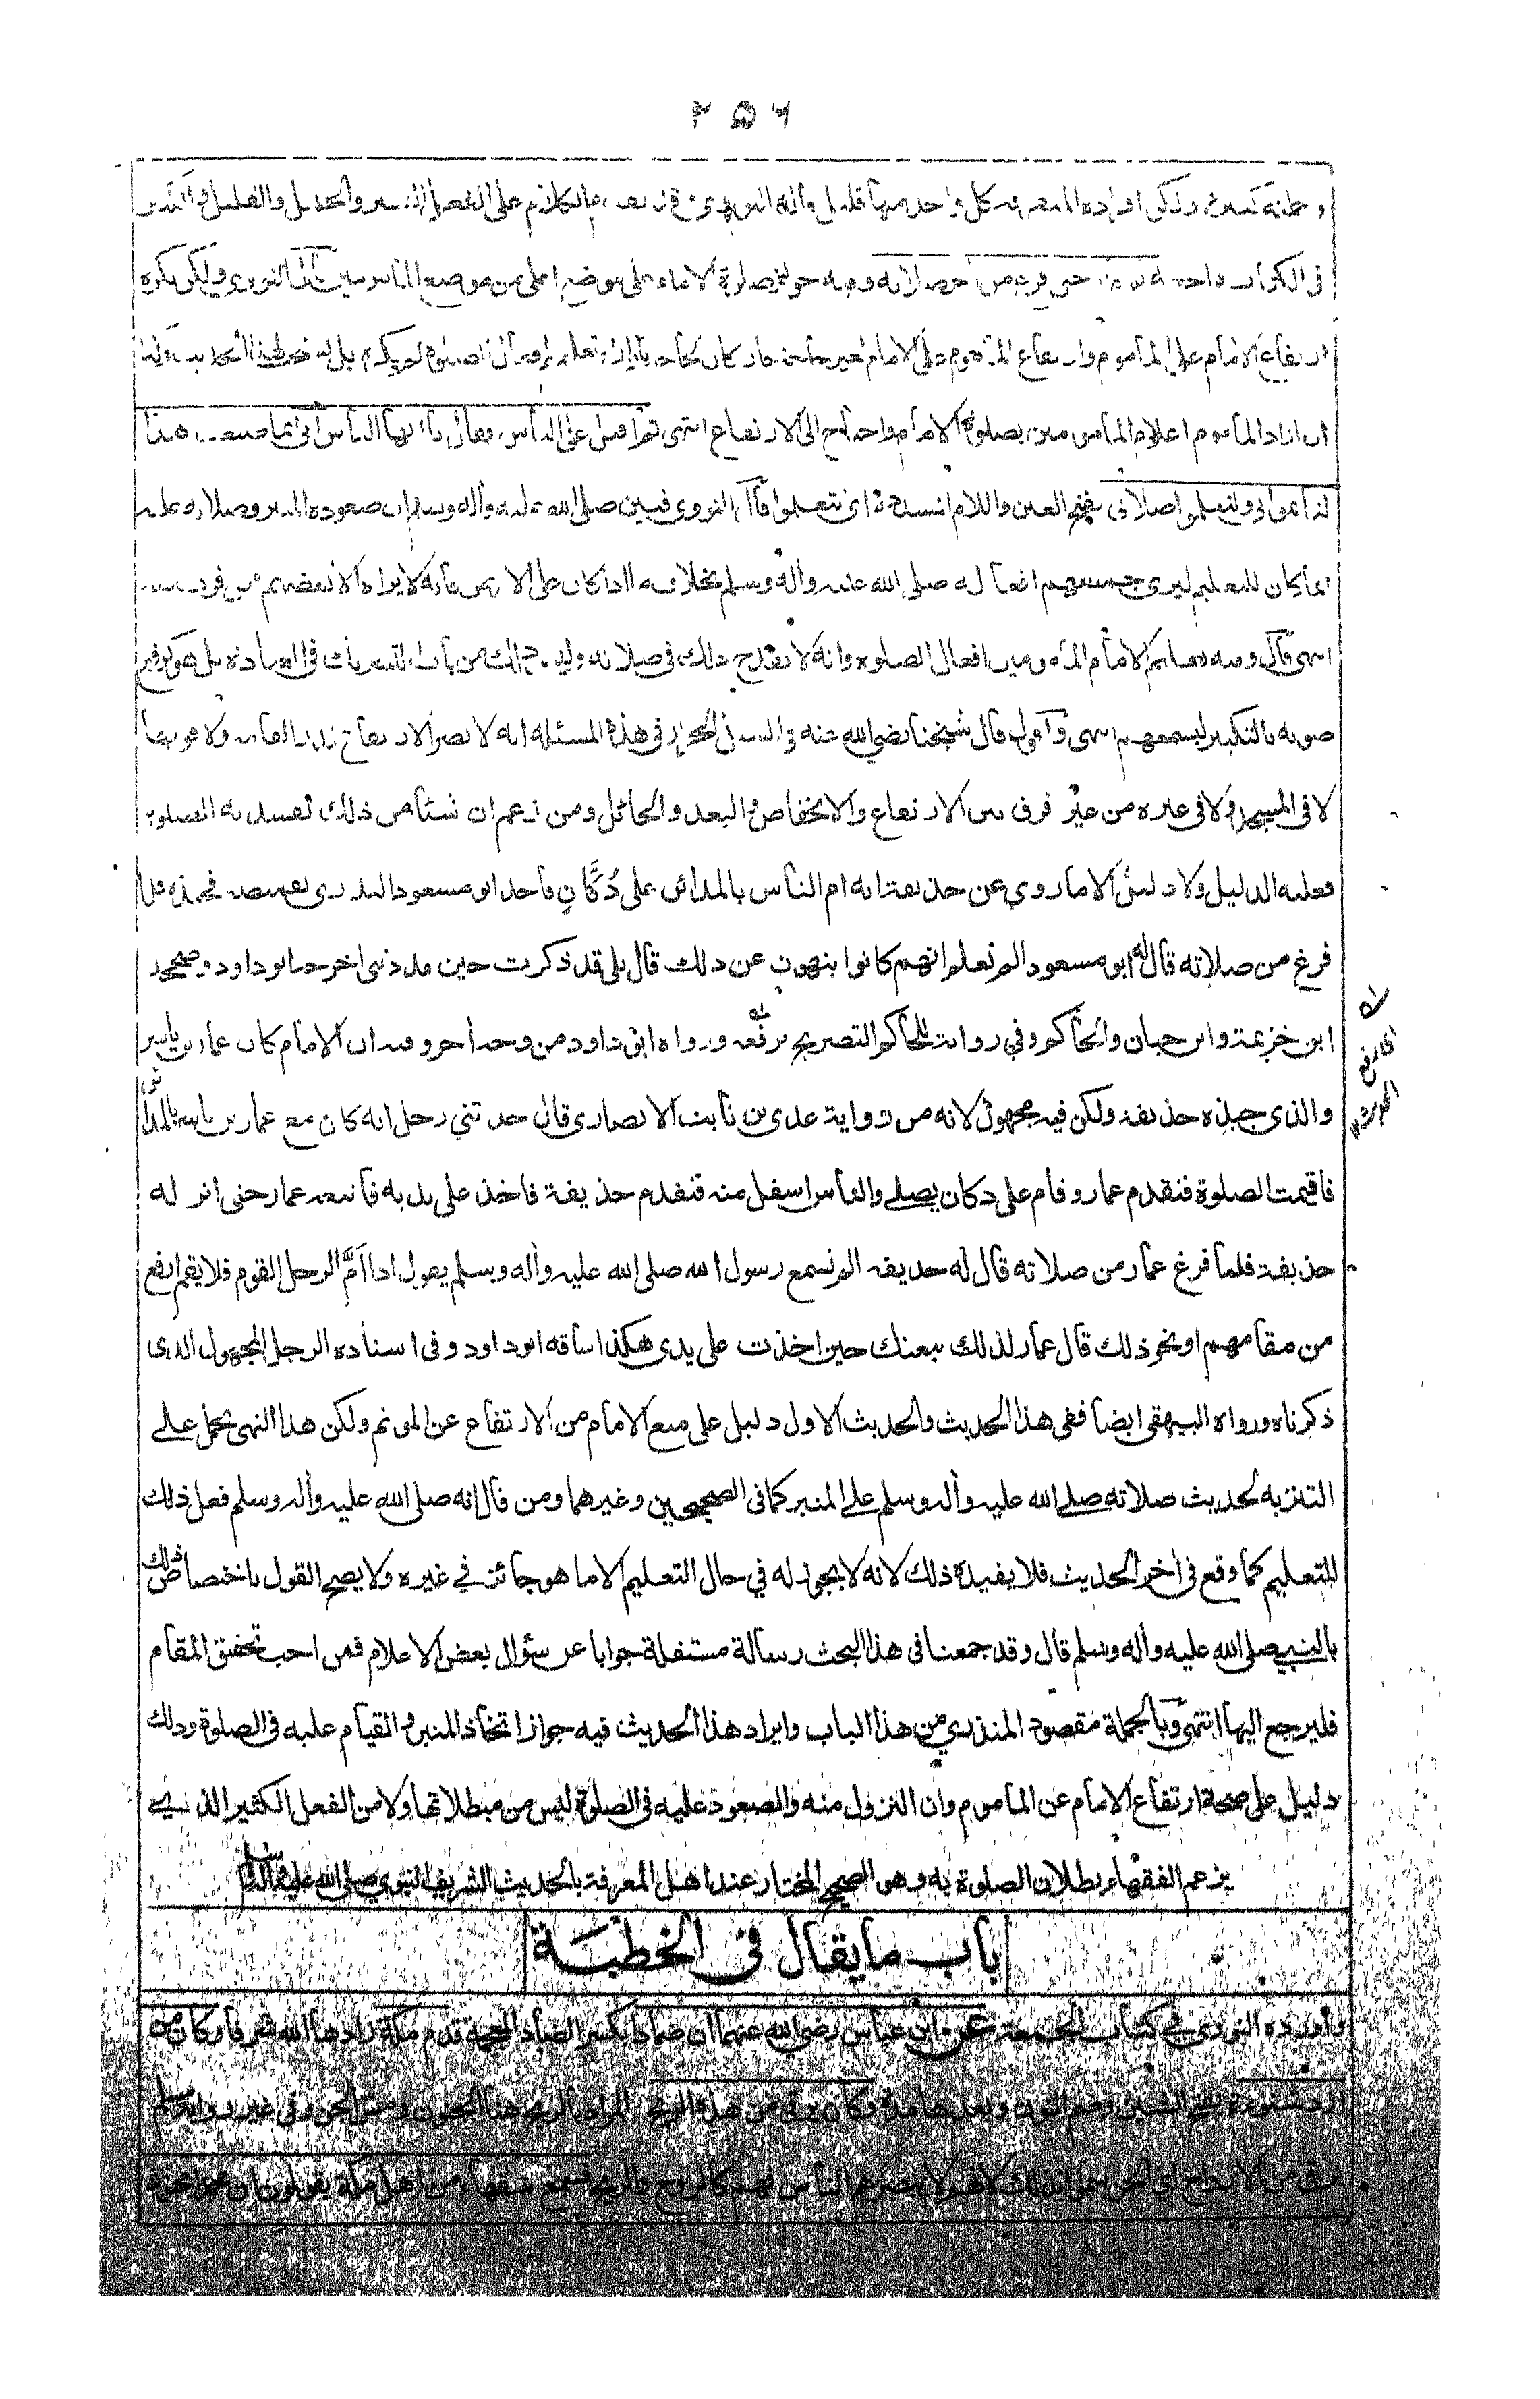 ٢٥٦
كل واحد منها قليل قاله النووي على الفصل اليسير والعمل القليل
في الكثرة صلوة الامام على موضع اعلى من موضع المامومين قال النووي ولكن يكره
ارتفاع الامام على المأموم وارتفاع المأموم على الامام لغير حاجة فان كان لحاجة بان اراد تعليمهم افعال الصلوة لم يكره بل يستحب لهذا الحديث وكذا
ان اراد المأموم اعلام المأمومين بصلوة الامام واحتاج الى الارتفاع انتهى ثم اقبل على الناس فقال يا ايها الناس اني انما صنعت هذا
لتأتموا بي ولتعلموا صلاتي بفتح العين واللام المشددة اي تتعلموا قال النووي فبين صلى الله عليه وأله وسلم ان صعوده المنبر وصلاته عليه
انما كان للتعليم ليرى جميعهم افعاله صلى الله عليه وأله وسلم بخلاف ما اذا كان على الارض فانه لا يراه الا بعضهم ممن قرب منه
انتهى قال وفيه تعليم الامام المأمومين افعال الصلوة وانه لا يقدح ذلك في صلاته وليس ذلك من باب التشريك في العبادة بل هو كرفع
صوته بالتكبير ليسمعهم انتهى واقول قال شيخنا رضي الله عنه في السيل الجرار في هذه المسئلة انه لا يضر الارتفاع قدر القامة ولا فوقها
لا في المسجد ولا في غيره من غير فرق بين الارتفاع والانخفاض والبعد والحائل ومن زعم ان شيئا من ذلك تفسد به الصلوة
فعليه الدليل ولا دليل الا ما روي عن حذيفة انه ام الناس بالمدائن على دُكَّانٍ فاخذ ابو مسعود البدري بقميصه فجبذه فلما
فرغ من صلاته قال له ابو مسعود الم تعلم انهم كانوا ينهون عن ذلك قال بلى قد ذكرت حين مددتني اخرجه ابو داود وصححه
ابن خزيمة وابن حبان والحاكم وفي رواية للحاكم التصريح برفعه ورواه ابو داود من وجه أخر وفيه ان الامام كان عمار بن ياسر
والذي جبذه حذيفة ولكن فيه مجهول لانه من رواية عدي بن ثابت الانصاري قال حدثني رجل انه كان مع عمار بن ياسر بالمدائن
فاقيمت الصلوة فتقدم عمار وقام على دكان يصلي والناس اسفل منه فتقدم حذيفة فاخذ على يديه فاتبعه عمار حتى انزله
حذيفة فلما فرغ عمار من صلاته قال له حذيفة الم تسمع رسول الله صلى الله عليه وأله وسلم يقول اذا اَمَّ الرجل القوم فلا يقم ارفع
من مقامهم او نحو ذلك قال عمار لذلك تبعتك حين اخذت على يدي هكذا ساقه ابو داود وفي اسناده الرجل المجهول الذي
ذكرناه ورواه البيهقي ايضا ففي هذا الحديث والحديث الاول دليل على منع الامام من الارتفاع عن المؤتم ولكن هذا النهي يحمل على
التنزيه لحديث صلاته صلى الله عليه وأله وسلم على المنبر كما في الصحيحين وغيرهما ومن قال انه صلى الله عليه وأله وسلم فعل ذلك
للتعليم كما وقع في أخر الحديث فلا يفيده ذلك لانه لا يجوز له في حال التعليم الا ما هو جائز في غيره ولا يصح القول باختصاص ذلك
بالنبي صلى الله عليه وأله وسلم قال وقد جمعنا في هذا البحث رسالة مستقلة جوابا عن سؤال بعض الاعلام فمن احب تحقيق المقام
فليرجع اليها انتهى وبالجملة مقصود المنذري من هذا الباب وايراد هذا الحديث فيه جواز اتخاذ المنبر والقيام عليه في الصلوة وذلك
دليل على صحة ارتفاع الامام عن المأموم وان النزول منه والصعود عليه في الصلوة ليس من مبطلاتها ولا من الفعل الكثير الذي
يزعم الفقهاء بطلان الصلوة به وهو الصحيح المختار عند اهل المعرفة بالحديث الشريف النبوي صلى الله عليه وأله وسلم
باب ما يقال في الخطبة
وأورده النووي في كتاب الجمعة عن ابن عباس رضي الله عنهما ان ضمادا بكسر الضاد المعجمة قدم مكة زادها الله شرفا وكان من
ازد شنوءة بفتح الشين وضم النون وبعدها مدة وكان يرقي من هذه الريح المراد بالريح هنا الجنون ومس الجن وفي غير رواية مسلم
يرقي من الارواح اي الجن سموا بذلك لانهم لا يبصرهم الناس فهم كالروح والريح فسمع سفهاء من اهل مكة يقولون ان محمدا مجنون